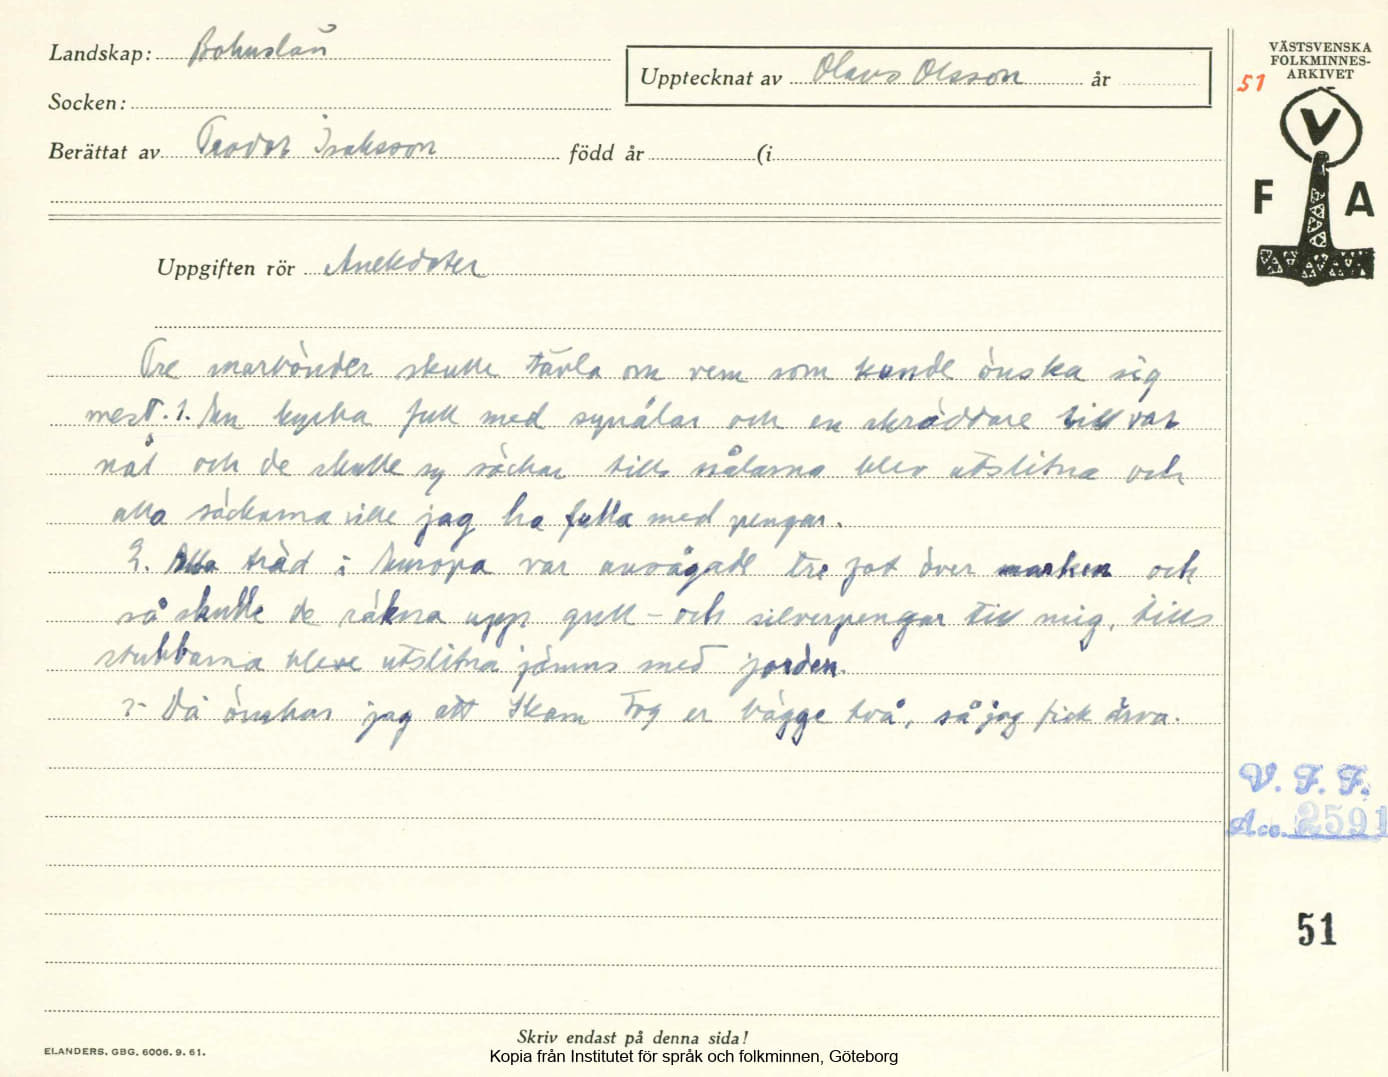 Landskap: Bohuslän
Socken:
Berättat av Teodor Isaksson född år (i
Upptecknat av Olavs Olsson år
VÄSTSVENSKA
FOLKMINNES-
ARKIVET
51
V
F A
Uppgiften rör Anekdoter
Tre markbönder skulle tävla om vem som kunde önska sig
mest. 1. En kyrka full med synålar och en skräddare till var
nål och de skulle sy säckar tills nålarna blev utslitna och
alla säckarna ville jag ha fulla med pengar.
2. Alla träd i Europa var avsågade tre fot över marken och
så skulle de räkna upp gull- och silverpengar till mig, tills
stubbarna bleve utslitna jämns med jorden.
3- Då önskar jag att Skam tog er bägge två, så jag fick ärva.
V. F. F.
Acc. 2591
51
Skriv endast på denna sida!
ELANDERS, GBG, 6006. 9. 61.
Kopia från Institutet för språk och folkminnen, Göteborg